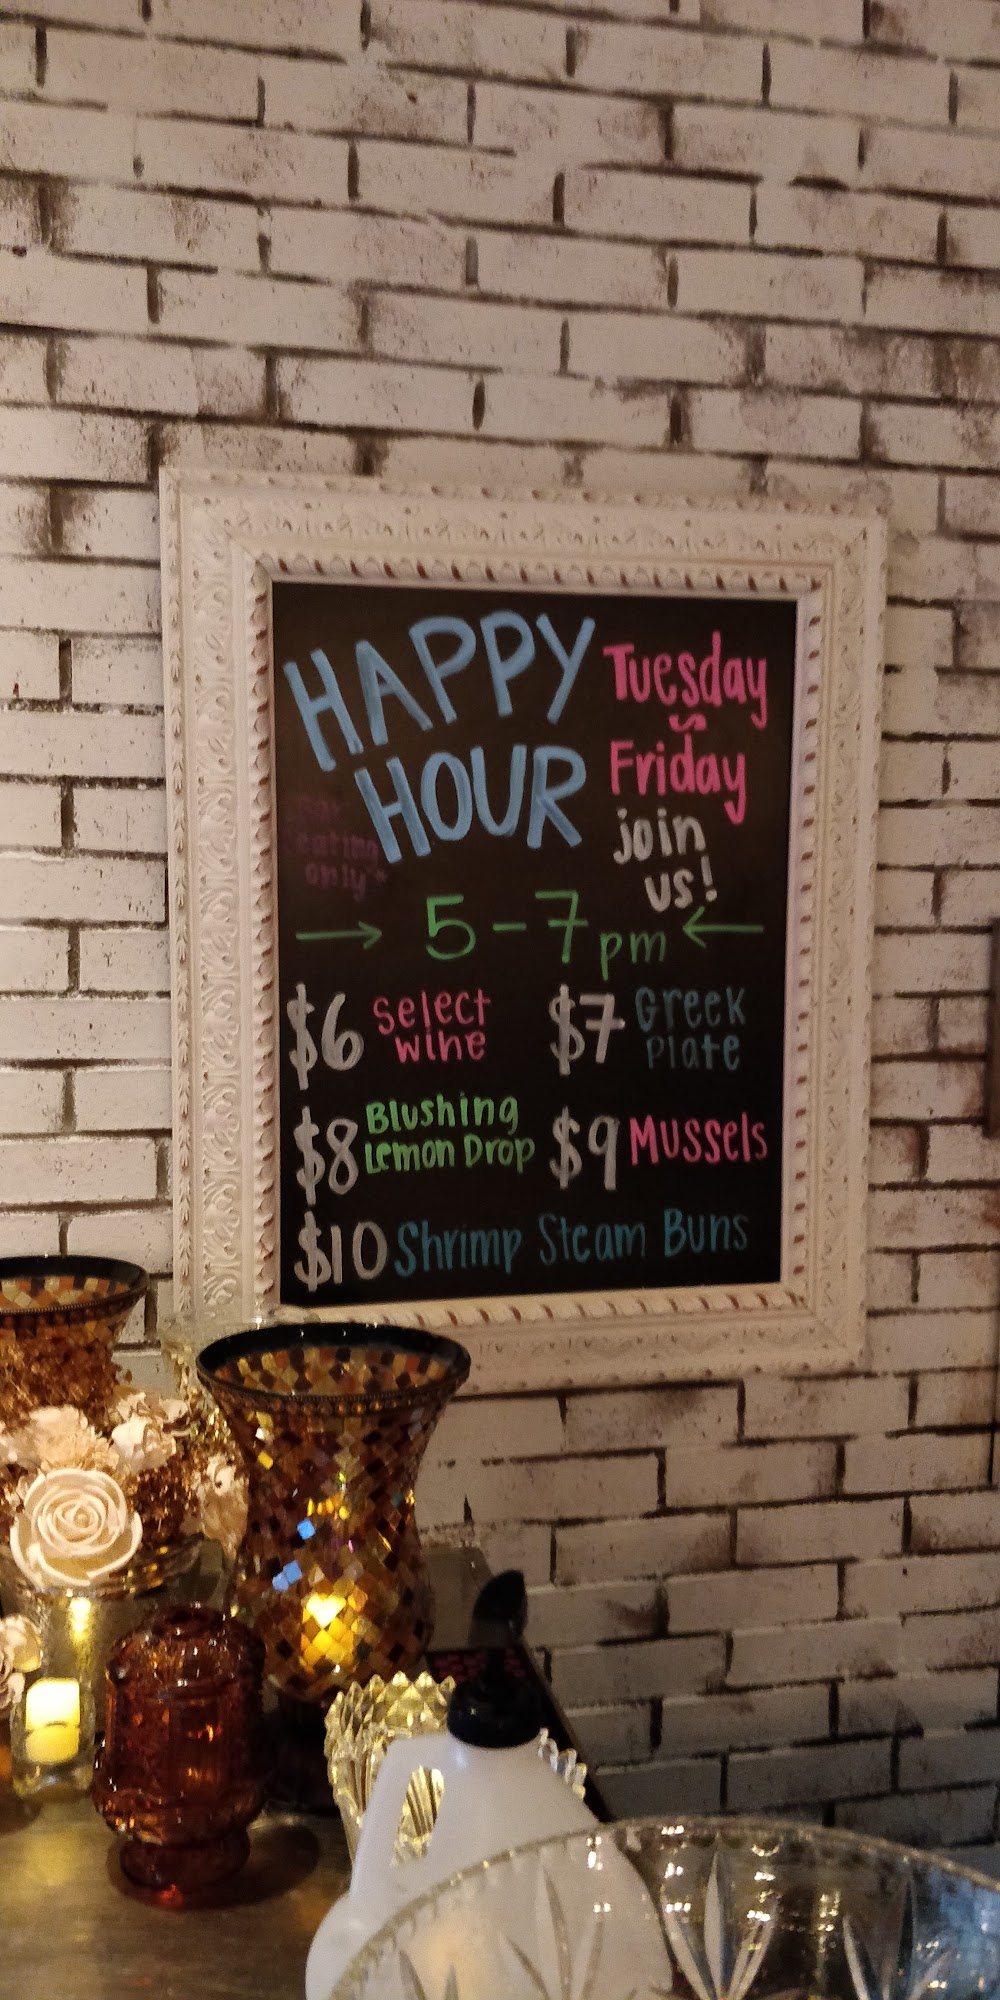 HAPPY
HOUR
Tuesday
~
Friday
join
us!
eating
only*
→ 5-7pm ←
$6 Select
wine
$7 Greek
Plate
$8 Blushing
Lemon Drop
$9 Mussels
$10 Shrimp Steam Buns